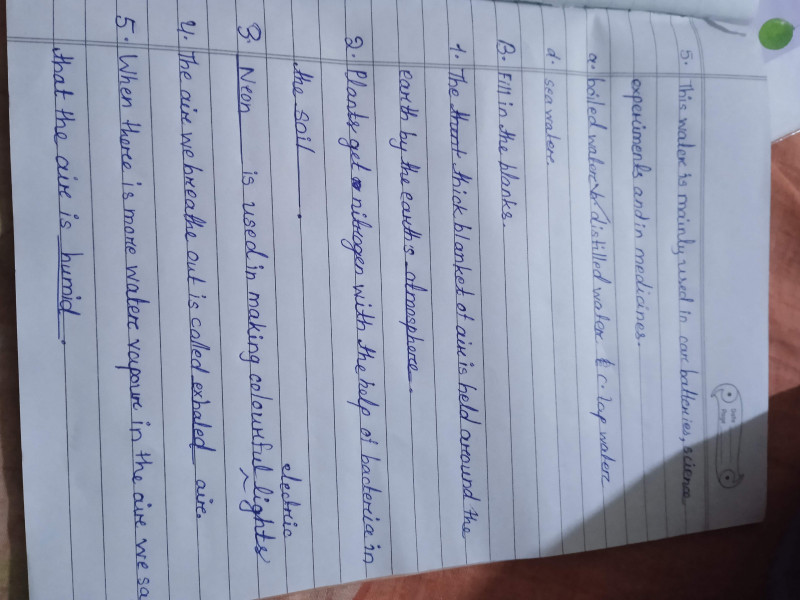 Date
Page
5. This water is mainly used in car batteries, science
experiments and in medicines.
a. boiled water b. distilled water c. tap water
d. sea water.
B. Fill in the blanks.
1. The thick blanket of air is held around the
earth by the earth's atmosphere.
2. Plants get nitrogen with the help of bacteria in
the soil.
electric
3. Neon is used in making colourful ^ lights
4. The air we breathe out is called exhaled air.
5. When there is more water vapour in the air we sa
that the air is humid.